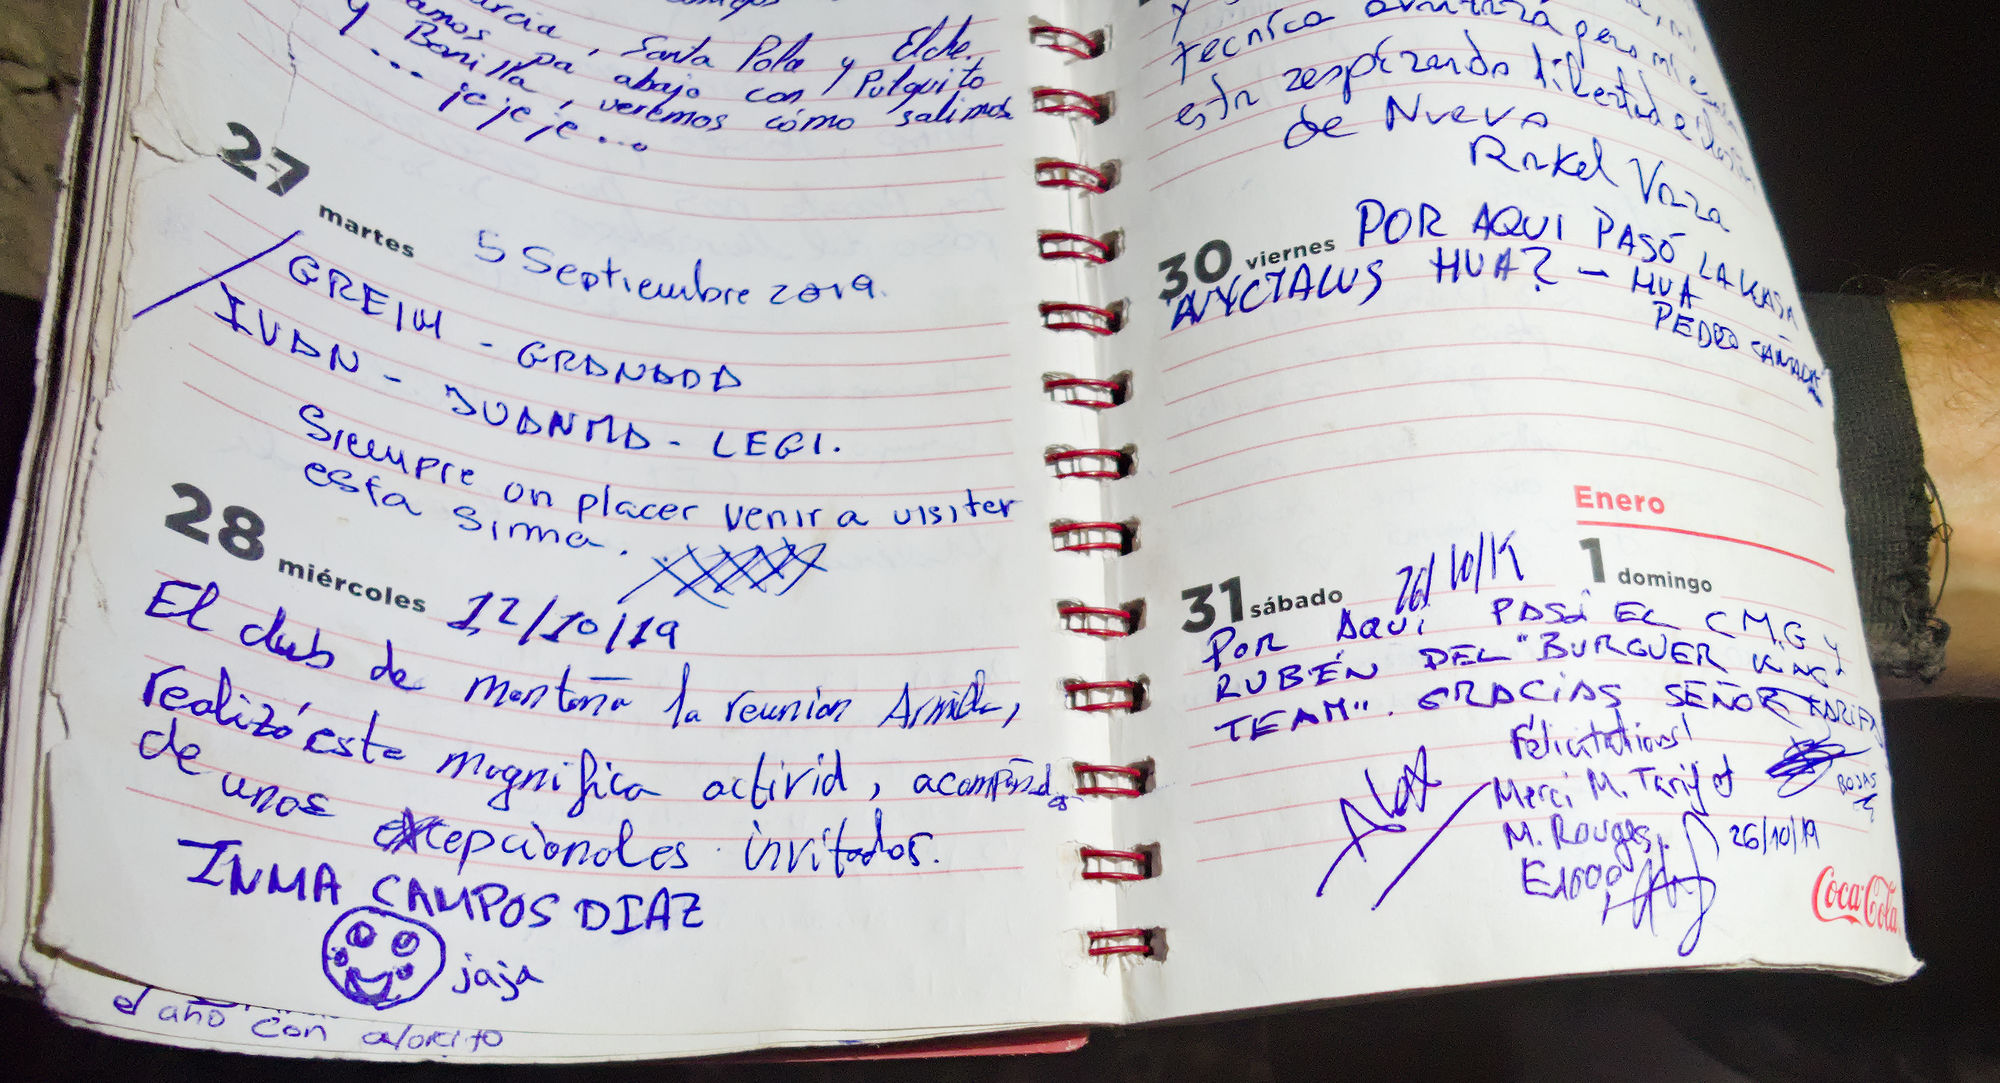 Santa Pola y Elche,
pa abajo con Pulguito
Bonilla, veremos cómo salimos
... jejeje...
27 martes
5 Septiembre 2019.
GREIM - GRANADA
IVAN - JUANMA - LEGI.
Siempre un placer venir a visiter
esta sima.
28 miércoles
12/10/19
El club de montaña la reunion Armilla,
realizó este magnifica activid, acompañado
de unos excepcionales invitados.
INMA CAMPOS DIAZ
jaja
el año con
tecnica pero mi
esta respirando libertad e
de Nuevo
Rakel Vaza
30 viernes
POR AQUI PASÓ LA
NYCTALUS HUAZ - HUA
PEDRO
Enero
31 sábado
1 domingo
POR AQUÍ PASÓ EL C.M.G y
RUBÉN DEL "BURGUER KING
TEAM". GRACIAS SEÑOR TARIFA
Felicitations!
Merci M. Tarif et
ROJAS
M. Rouges.
26/10/19
Coca-Cola